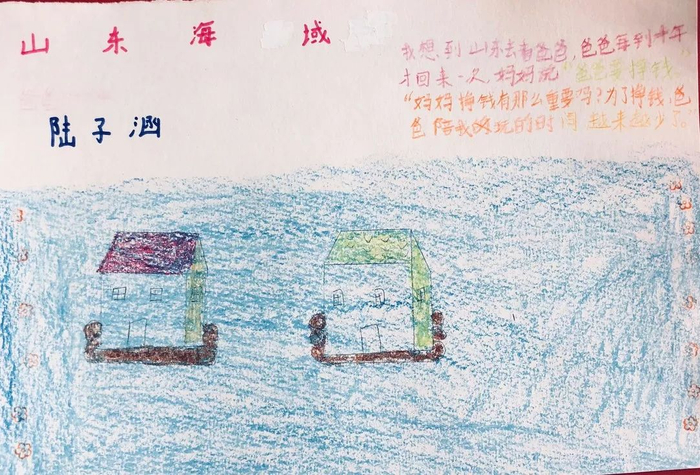 山东海域
我想到山东去看爸爸,爸爸每到半年
才回来一次,妈妈说“爸爸要挣钱”
“妈妈挣钱有那么重要吗?为了挣钱,爸
爸陪我游玩的时间越来越少了。”
陆子涵